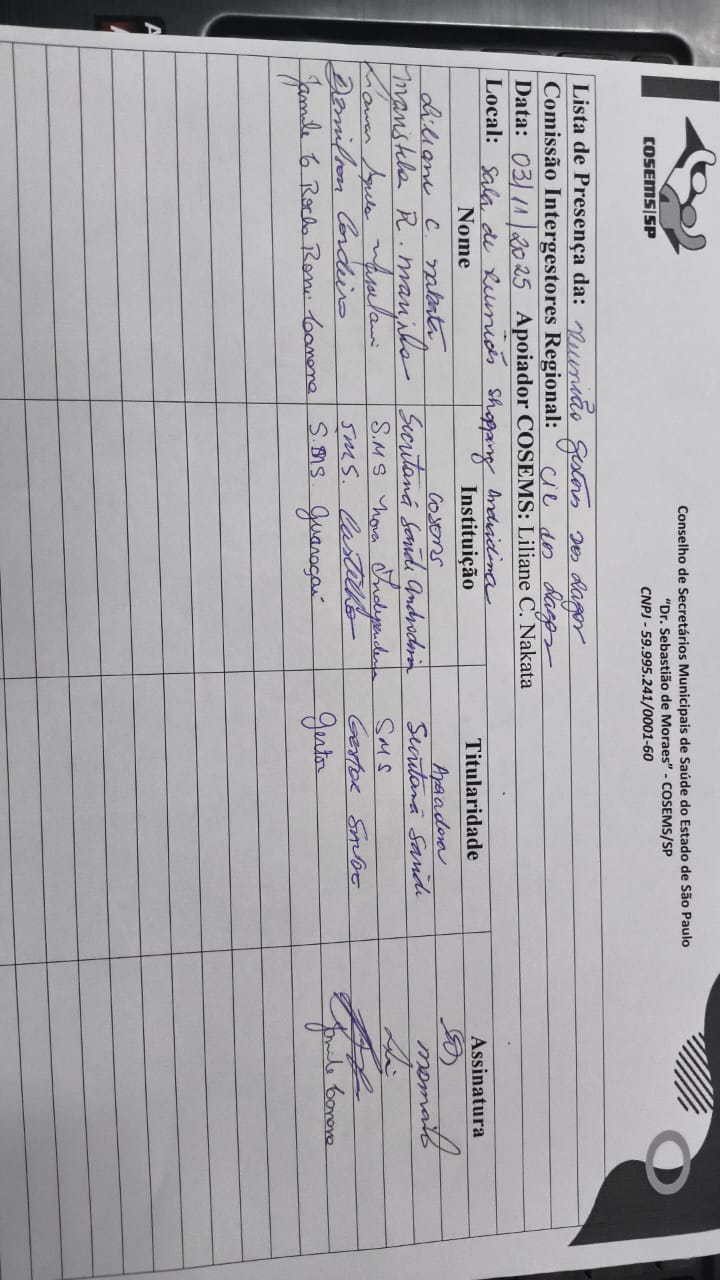 COSEMS|SP
Conselho de Secretários Municipais de Saúde do Estado de São Paulo
"Dr. Sebastião de Moraes" - COSEMS/SP
CNPJ - 59.995.241/0001-60
Lista de Presença da: Reunião gestores dos Lagos
Comissão Intergestores Regional: CIR dos Lagos
Data: 03/11/2025 Apoiador COSEMS: Liliane C. Nakata
Local: Sala de Reunião Shopping Andradina
Nome Instituição Titularidade Assinatura
Liliane C. Nakata COSEMS Apoiadora
Maristela R. Marinho Secretaria Saúde Andradina Secretaria Saúde
S.M.S Nova Independencia SMS
Demilson Cordeiro S.M.S. Castilho Gestor Saúde
Jamile Rocha Romi Canova S.M.S. Guaraçai Gestor Jamile Canova